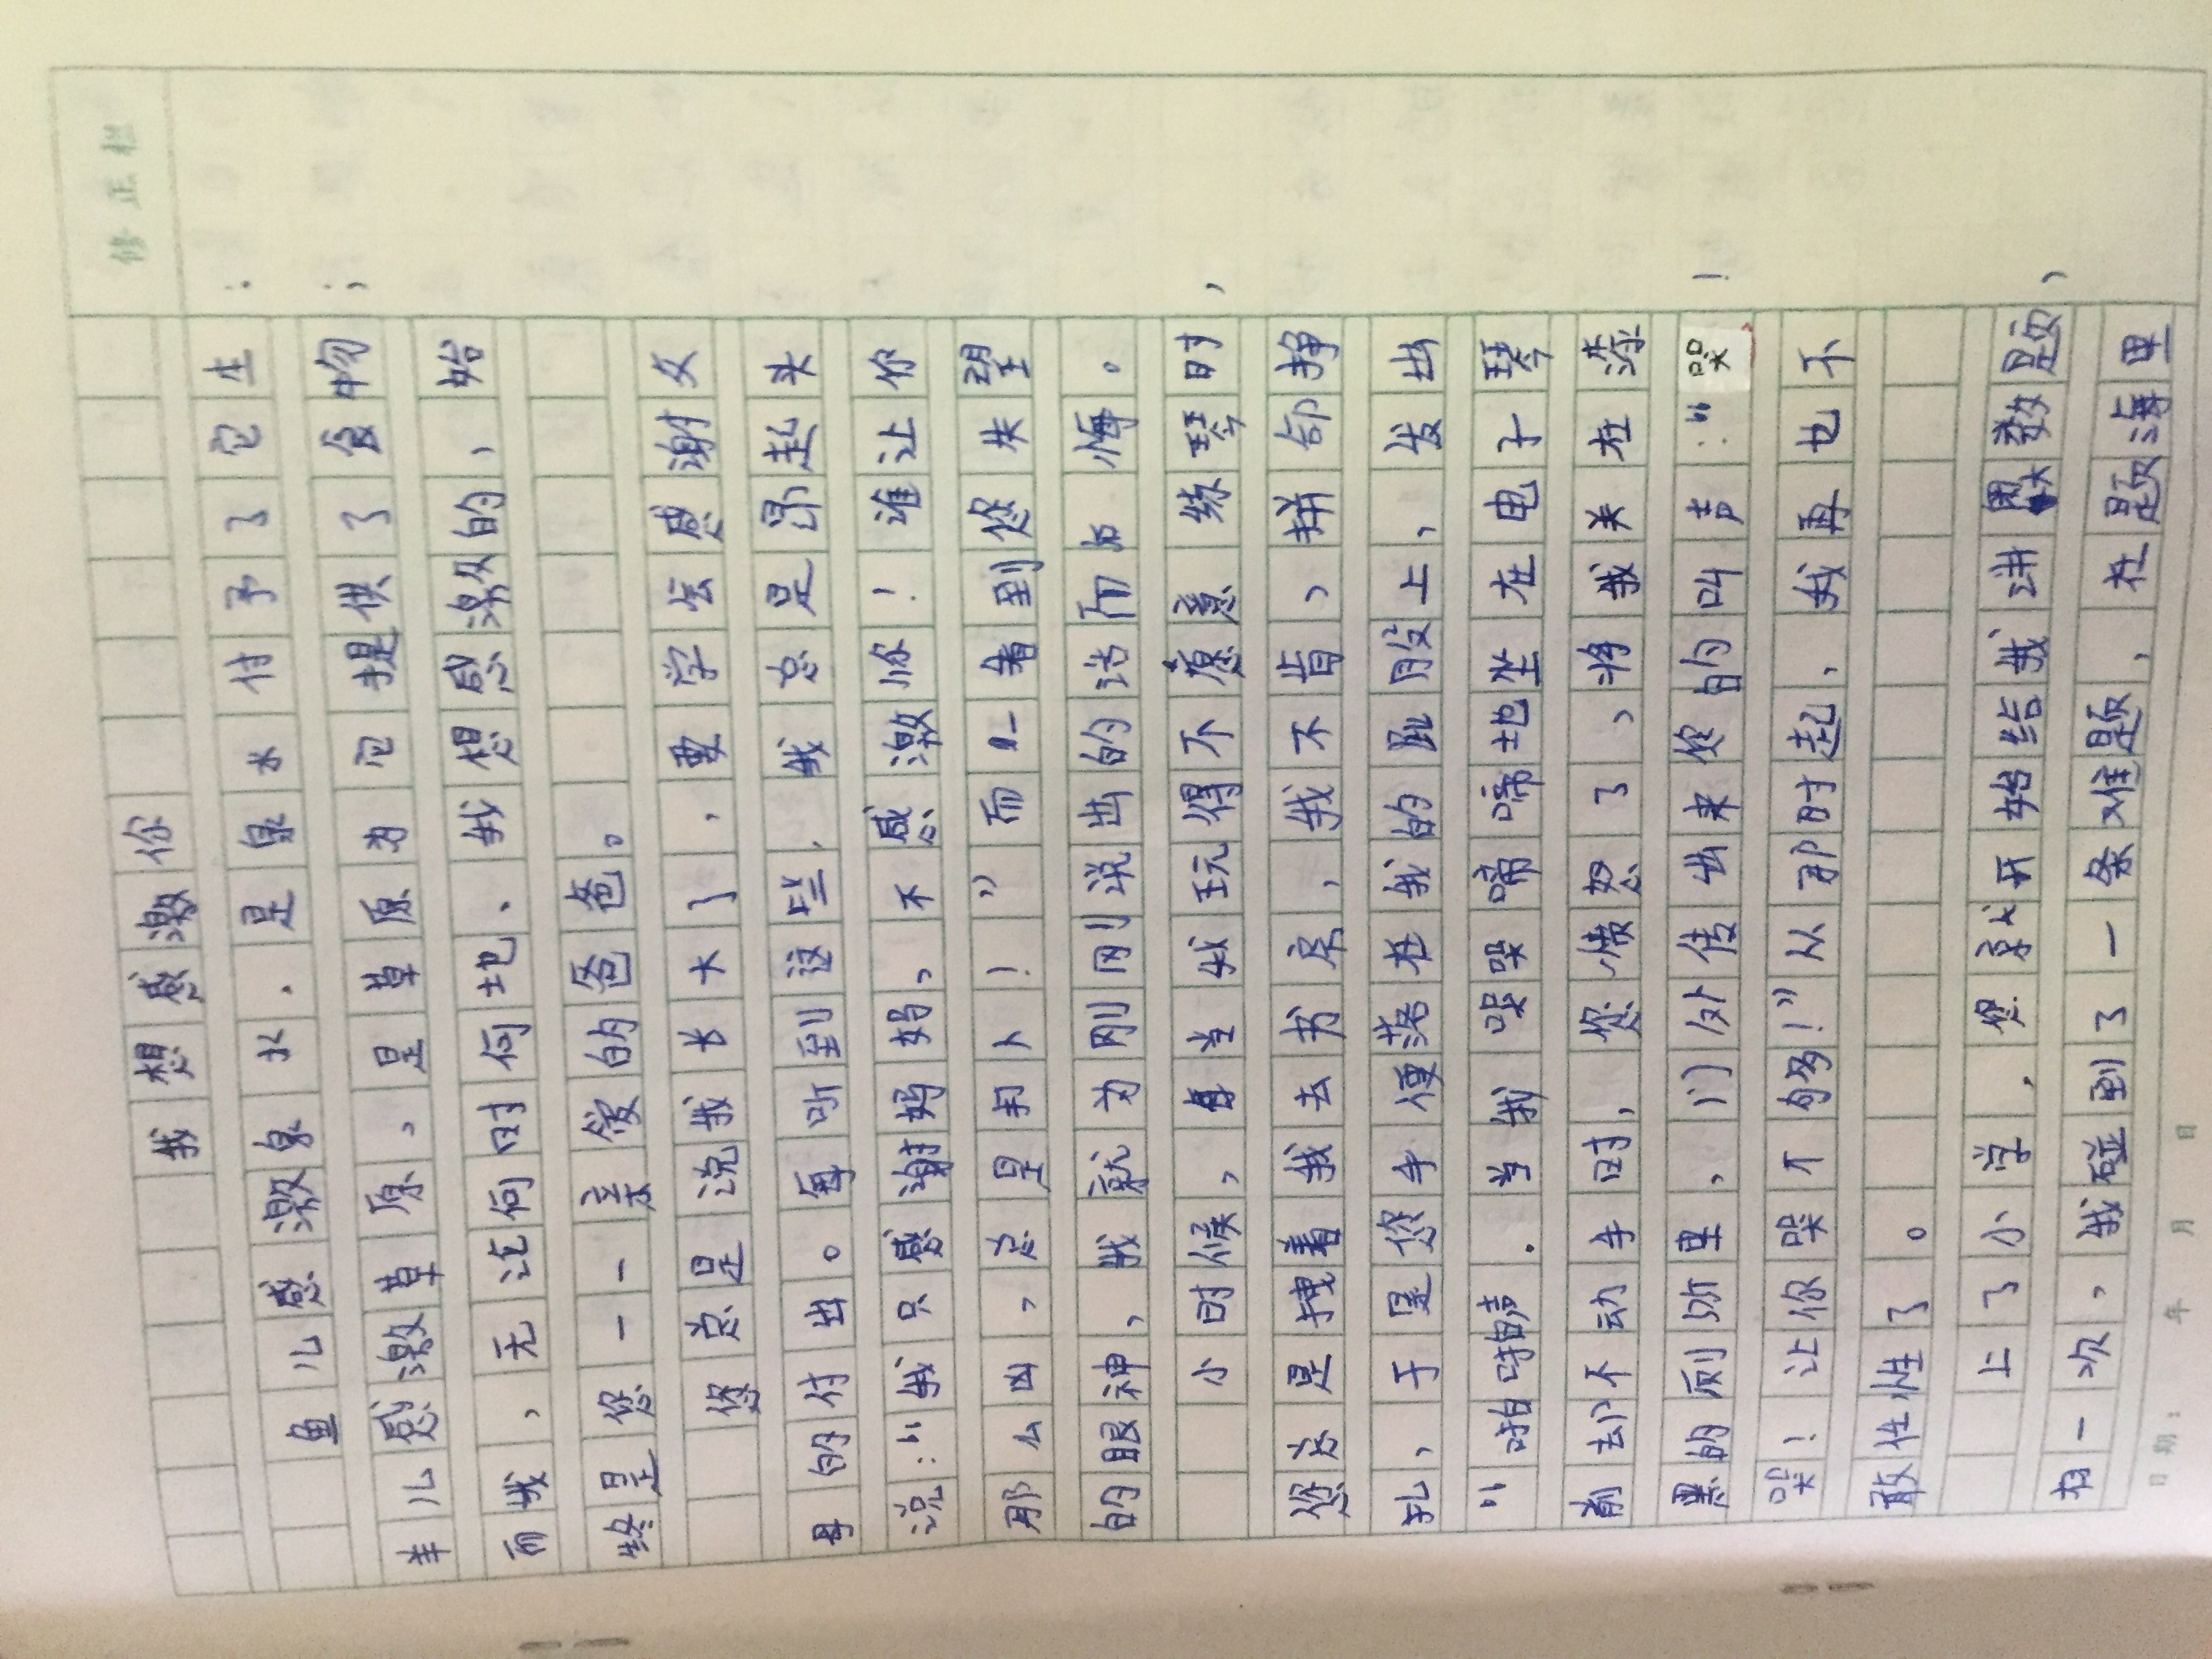 我想感激你
鱼儿感激泉水,是泉水付予了它生;
羊儿感激草原,是草原为它提供了食物;
而我,无论何时何地,我想感激的,始
终是您——亲爱的爸爸。
您总是说我长大了,要学会感谢父
母的付出。每听到这些,我总是昂起头
说:“我只感谢妈妈,不感激你!谁让你
那么凶,总是打人!”而一看到您失望
的眼神,我就为刚刚说出的话而后悔。
小时候,每当我玩得不愿意练琴时,
您总是拽着我去书房,我不肯,拼命挣
扎,于是您手便落在我的屁股上,发出
“啪啪声.当我哭哭啼啼地坐在电子琴
前却不动手时,您愤怒了,将我关在漆
黑的厕所里,门外传出来您的叫声:“哭!
哭!让你哭个够!”从那时起,我再也不
敢任性了。
上了小学,您就开始给我讲奥数题,
有一次,我碰到了一条难题,在题海里
修正栏
日期: 年 月 日